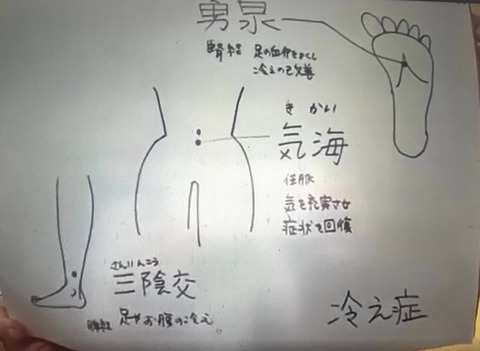 勇泉
腎経 足の血行をよくし
冷えの改善
き かい
気海
任脈
気を充実させ
症状を回復
さんいんこう
三陰交
脾経 足やお腹の冷え
冷え症